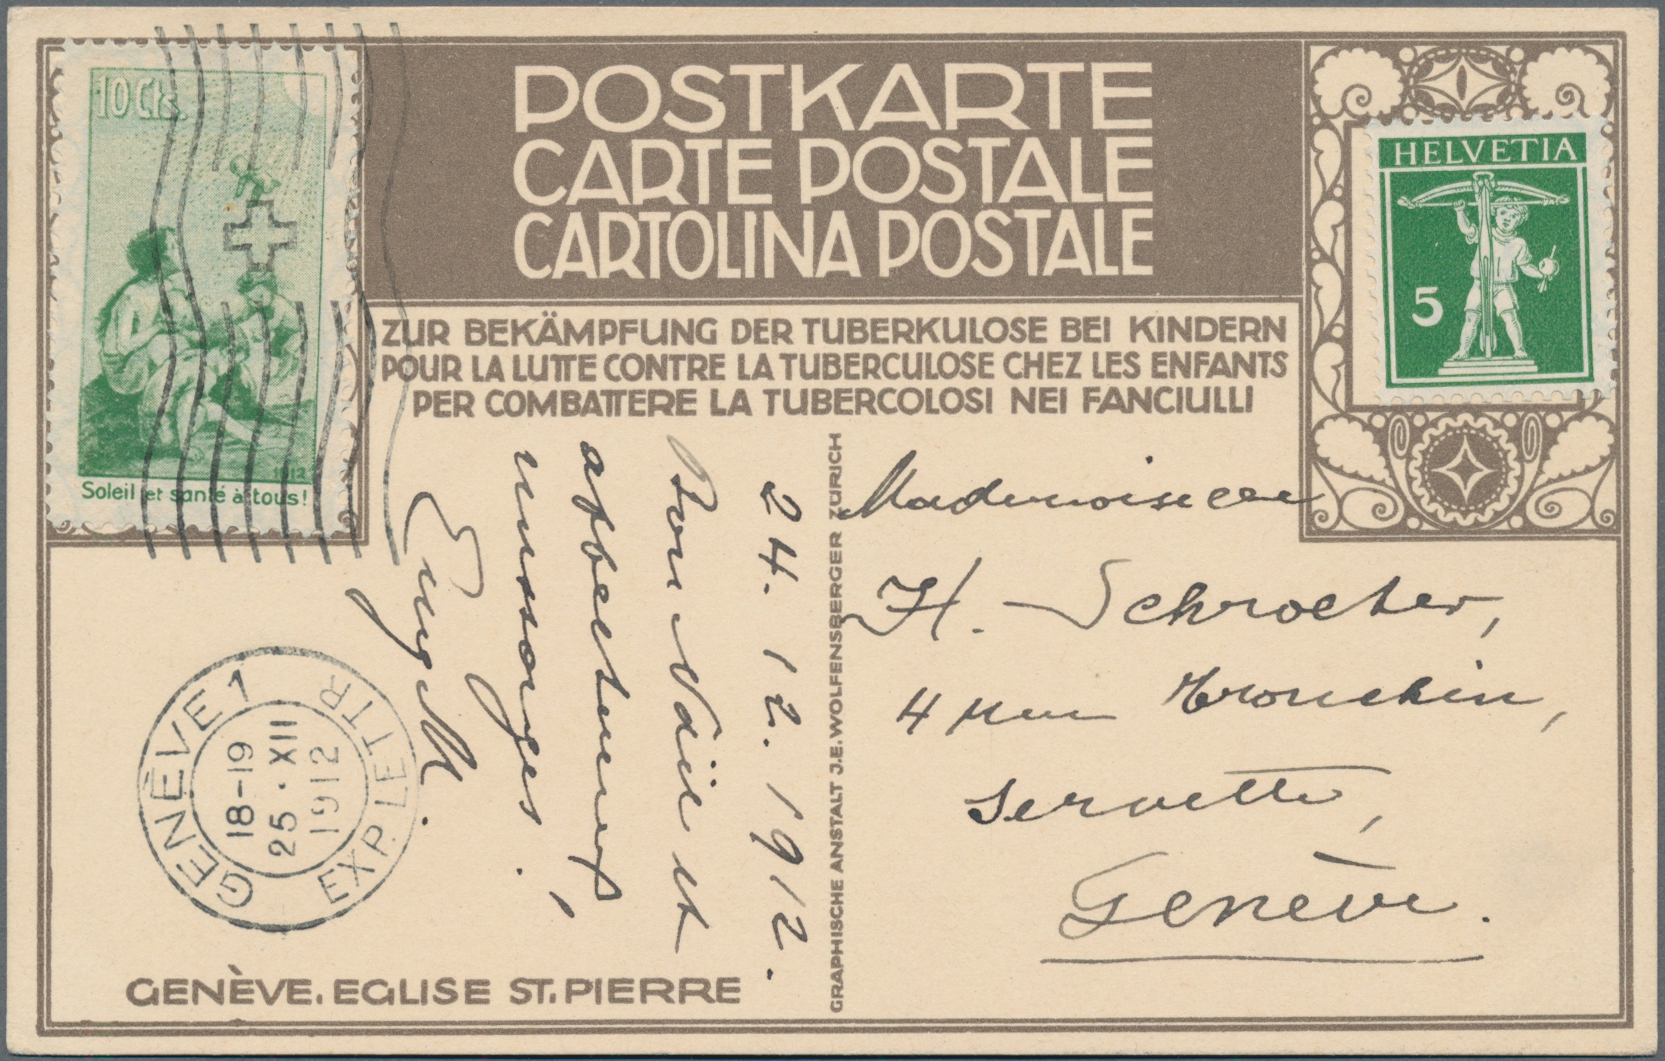 10 Cts.
1912
Soleil et santé à tous!
POSTKARTE
CARTE POSTALE
CARTOLINA POSTALE
HELVETIA
5
ZUR BEKÄMPFUNG DER TUBERKULOSE BEI KINDERN
POUR LA LUTTE CONTRE LA TUBERCULOSE CHEZ LES ENFANTS
PER COMBATTERE LA TUBERCOLOSI NEI FANCIULLI
24.12.1912.
Bon Noël et
affectueux
messages,
GRAPHISCHE ANSTALT J.E. WOLFENSBERGER ZÜRICH
Mademoiselle
H. Schroeter,
4 rue Tronchin,
Servette,
Genève.
GENÈVE 1
18-19
25.XII
1912
EXP. LETTR
GENÈVE. EGLISE ST. PIERRE